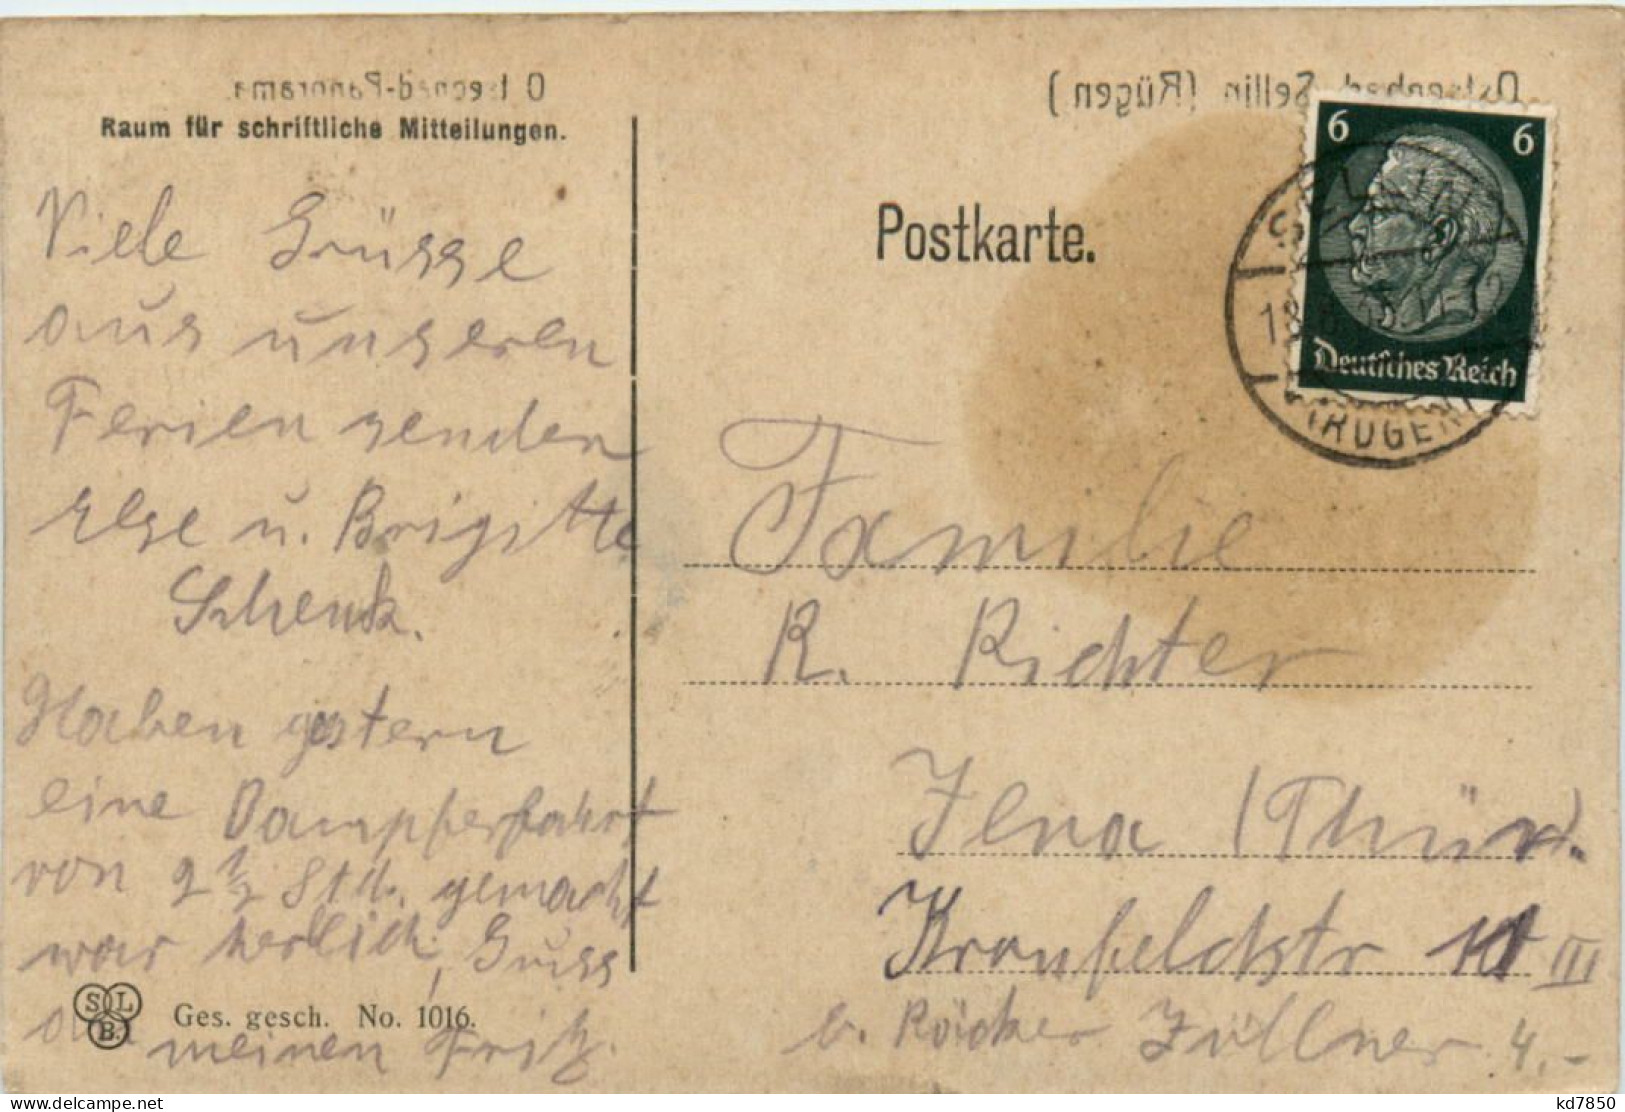 Ostseebad-Panorama.
Ostseebad Sellin (Rügen)
Raum für schriftliche Mitteilungen.
Postkarte.
6 6
Deutsches Reich
SELLIN
(RÜGEN)
Viele Grüsse
aus unseren
Ferien senden
Else u. Brigitte
Schenk.
Haben gestern
eine Dampferfahrt
von 2 1/2 Std. gemacht
war herlich, Gruss
an
meinen Fritz.
Familie
R. Richter
Jena (Thür).
Kronfeldstr 10 III
b.
S L
B.
Ges. gesch. No. 1016.
delcampe.net
kd7850